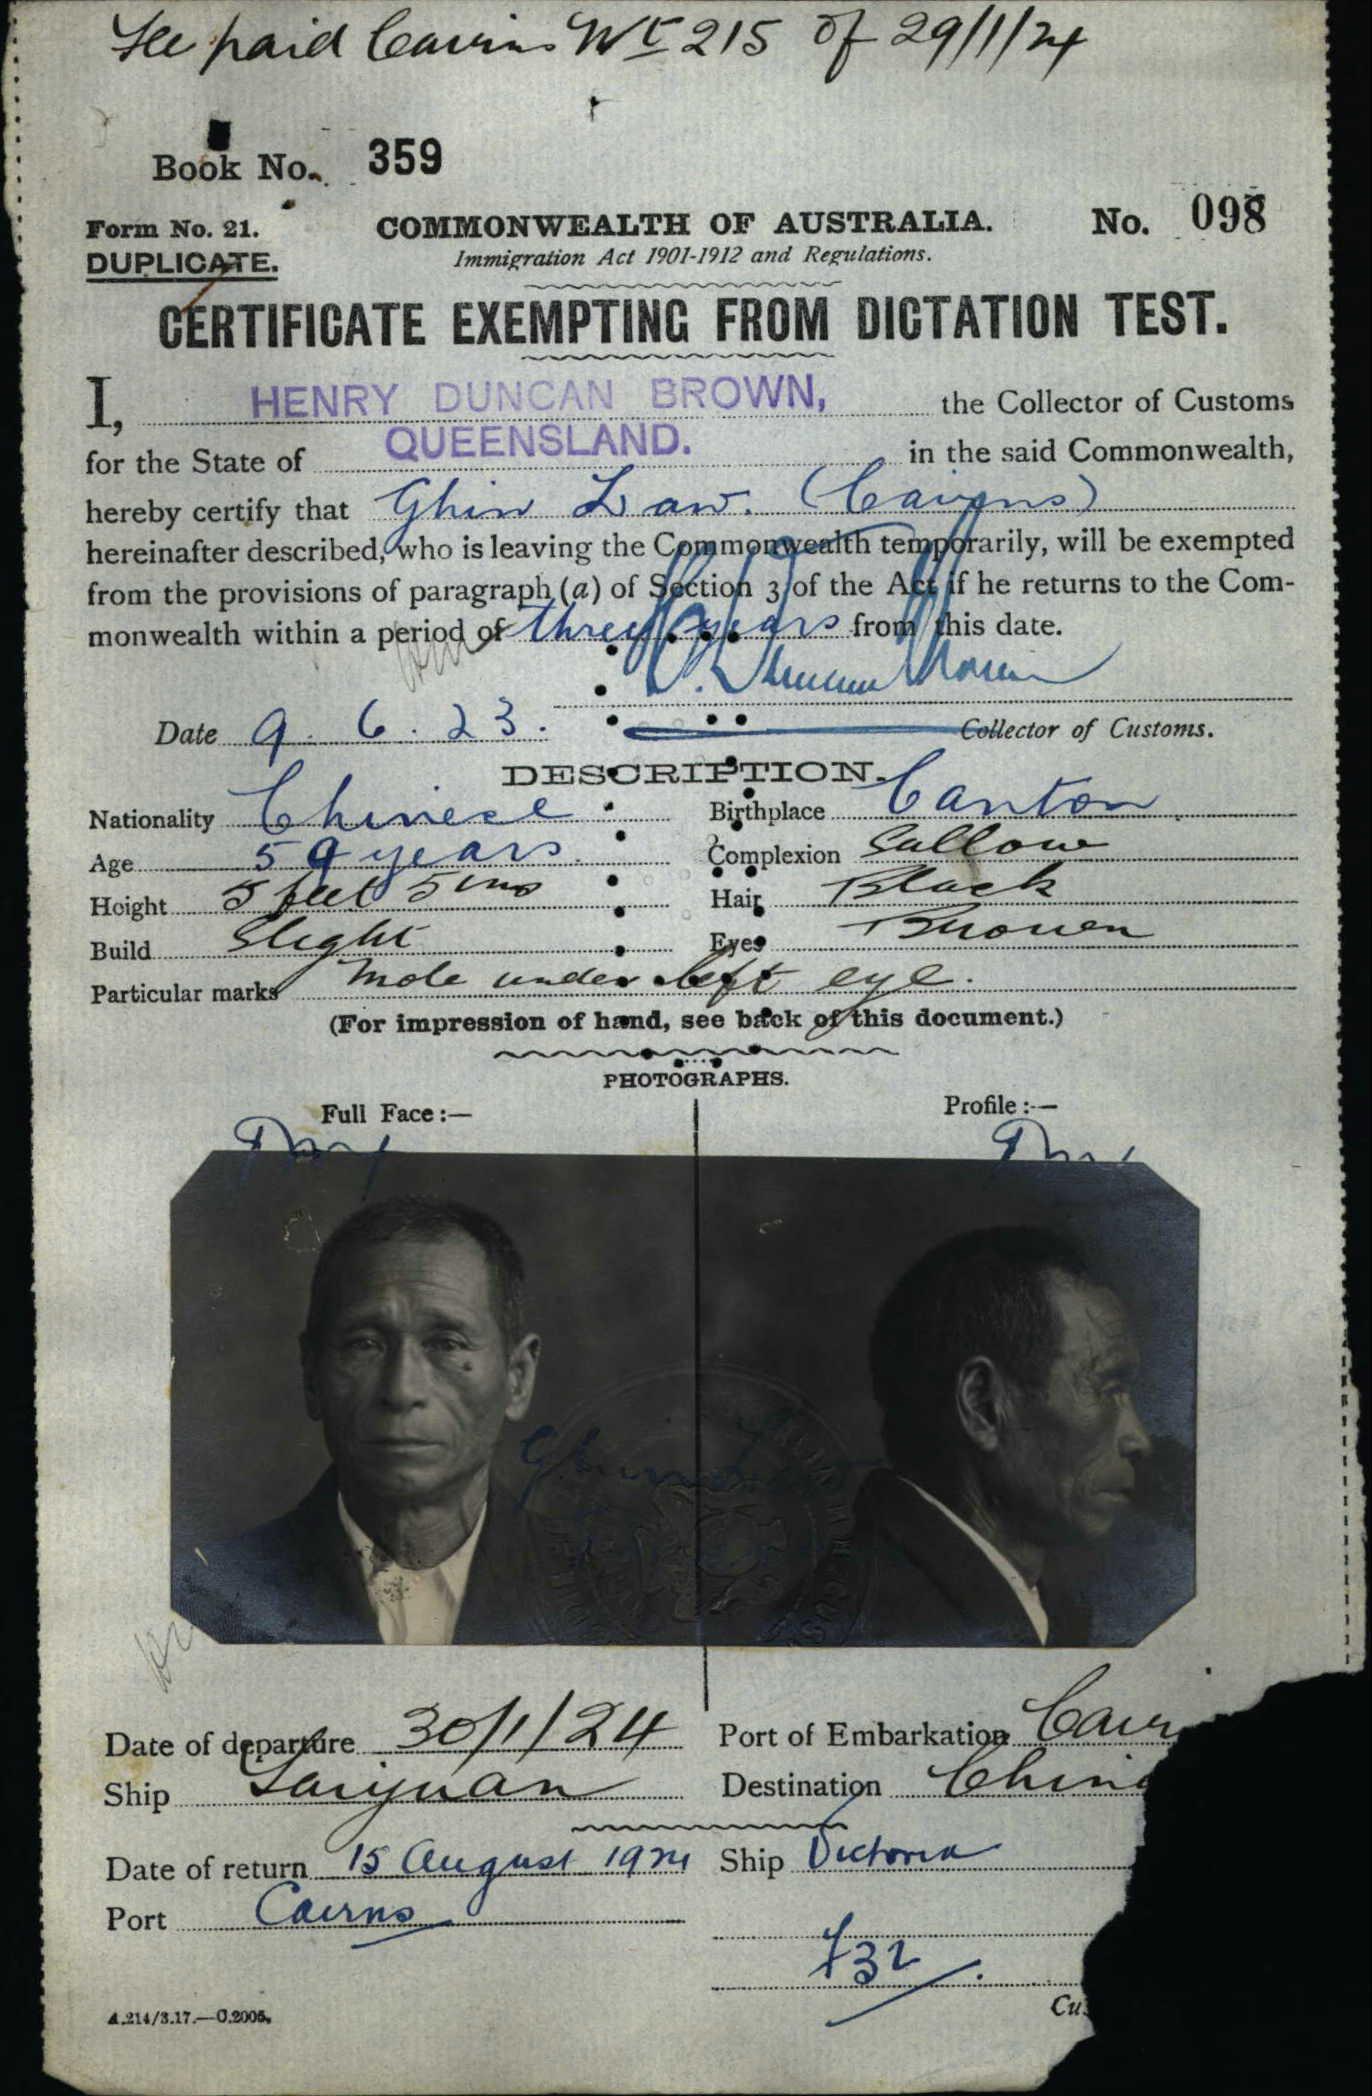 Fee paid Cairns Wt 215 of 29/1/24
Book No. 359
Form No. 21.
COMMONWEALTH OF AUSTRALIA.
No. 098
DUPLICATE.
Immigration Act 1901-1912 and Regulations.
CERTIFICATE EXEMPTING FROM DICTATION TEST.
I, HENRY DUNCAN BROWN, the Collector of Customs
for the State of QUEENSLAND. in the said Commonwealth,
hereby certify that Ghin Law. (Cairns)
hereinafter described, who is leaving the Commonwealth temporarily, will be exempted
from the provisions of paragraph (a) of Section 3 of the Act if he returns to the Com-
monwealth within a period of three years from this date.
Date 9. 6. 23. Collector of Customs.
DESCRIPTION.
Nationality Chinese Birthplace Canton
Age 59 years. Complexion Sallow
Height 5 feet 5 ins Hair Black
Build Slight Eyes Brown
Particular marks Mole under left eye.
(For impression of hand, see back of this document.)
PHOTOGRAPHS.
Full Face:— Profile:—
Date of departure 30/1/24 Port of Embarkation Cair
Ship Taiyuan Destination Chin
Date of return 15 August 1924 Ship Victoria
Port Cairns
A.214/3.17.—C.2005.
Cus